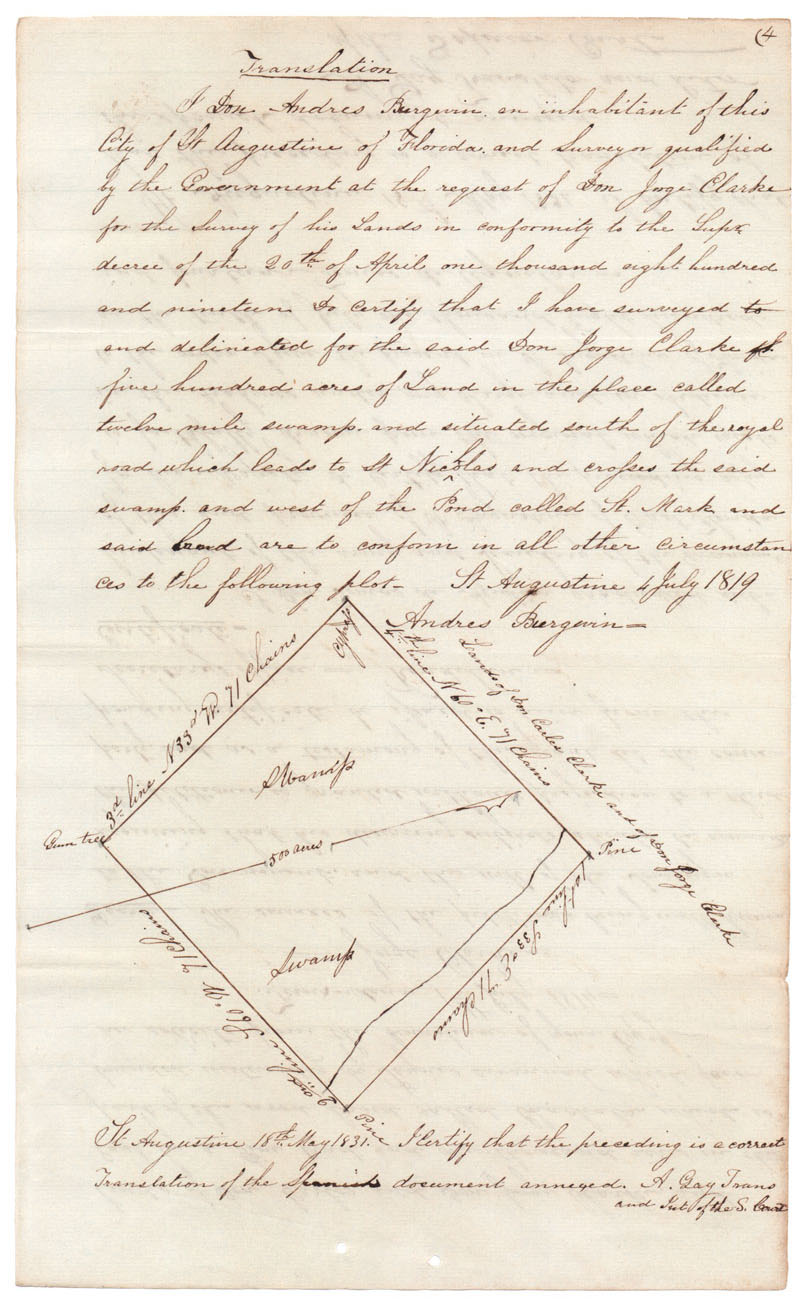 (4
Translation
I Don Andres Burgevin an inhabitant of this
City of St Augustine of Florida. and Surveyor qualified
by the Government at the request of Don Jorge Clarke
for the Survey of his Lands in conformity to the Supr
decree of the 20th of April one thousand eight hundred
and nineteen Do certify that I have surveyed to
and delineated for the said Don Jorge Clarke
five hundred acres of Land in the place called
twelve mile swamp. and situated south of the royal
road which leads to St Nicholas and crosses the said
swamp. and west of the Pond called St. Mark and
said land are to conform in all other circumstan
ces to the following plot - St Augustine 4 July 1819
Andres Burgevin =
Cypress
3d line N33d W. 71 Chains
4th line N60° E. 71 Chains
Lands of Don Carlos Clarke and of Don Jorge Clarke
Swamp
Gum tree
500 acres
Pine
1st line S33° E 71 Chains
Swamp
2nd line S60° W 71 Chains
Pine
St Augustine 18th May 1831. I Certify that the preceding is a correct
Translation of the Spanish document annexed. A. Gay Trans
and Int. of the S. Court